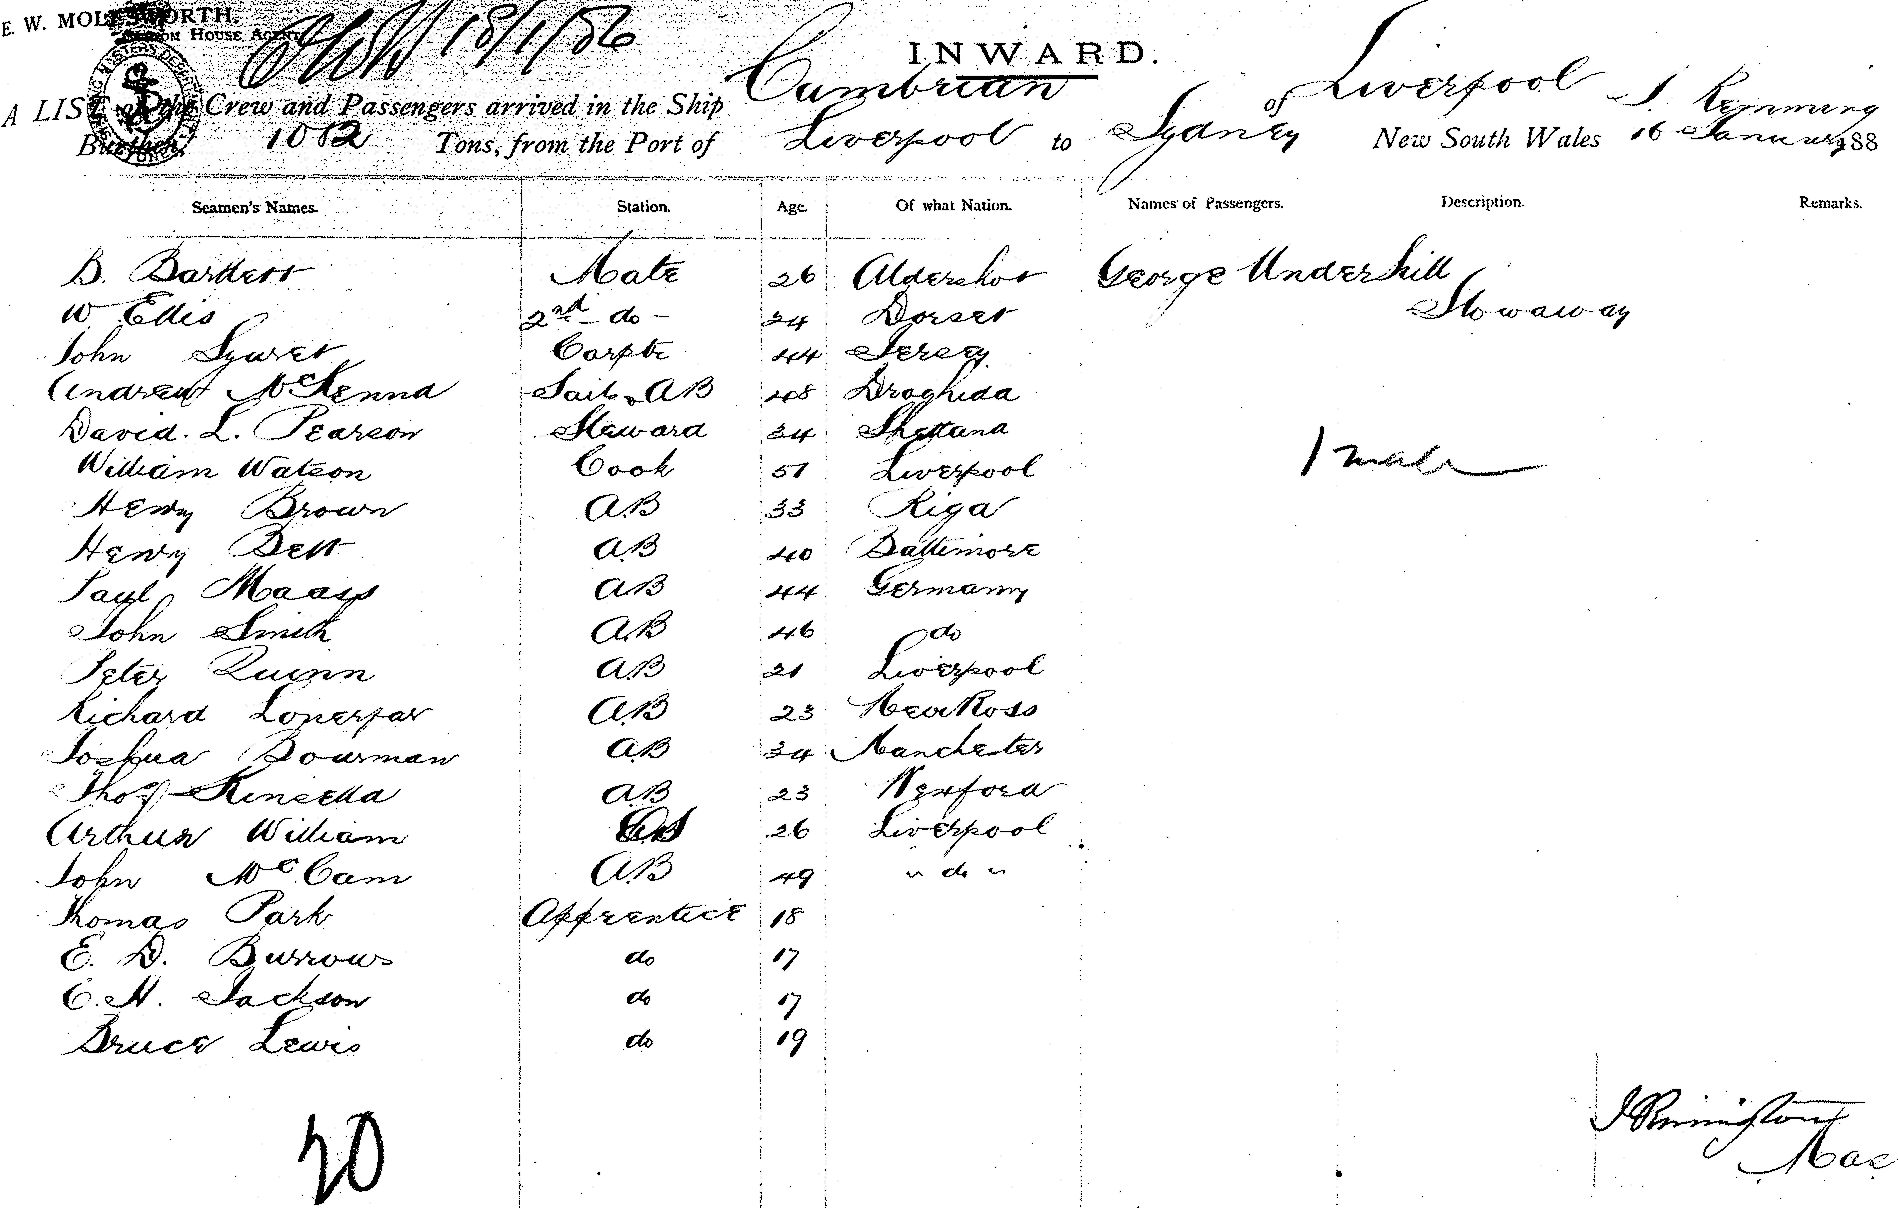 E. W. MOLESWORTH.
CUSTOM HOUSE AGENT
18/1/86
INWARD.
A LIST of the Crew and Passengers arrived in the Ship Cumbrian of Liverpool
Burthen, 1012 Tons, from the Port of Liverpool to Sydney New South Wales 16 January 188
Seamen's Names. Station. Age. Of what Nation. Names of Passengers. Description. Remarks.
B. Bartlett Mate 26 Aldershot George Underhill
W Ellis 2nd do 24 Dorset Stowaway
John Syvret Carptr 44 Jersey
Andrew McKenna Sailr AB 48 Droghida
David. L. Pearson Steward 34 Shettand
William Watson Cook 51 Liverpool 1 male
Henry Brown AB 33 Riga
Henry Bett AB 40 Baltimore
Paul Maass AB 44 Germany
John Smith AB 46 do
Peter Quinn AB 21 Liverpool
Richard AB 23 New Ross
Joshua Bowman AB 34 Manchester
Thos Kinsella AB 23 Wexford
Arthur William OS 26 Liverpool
John McCam AB 49 " do "
Thomas Park Apprentice 18
E. D. Burrows do 17
C. H. Jackson do 17
Bruce Lewis do 19
20